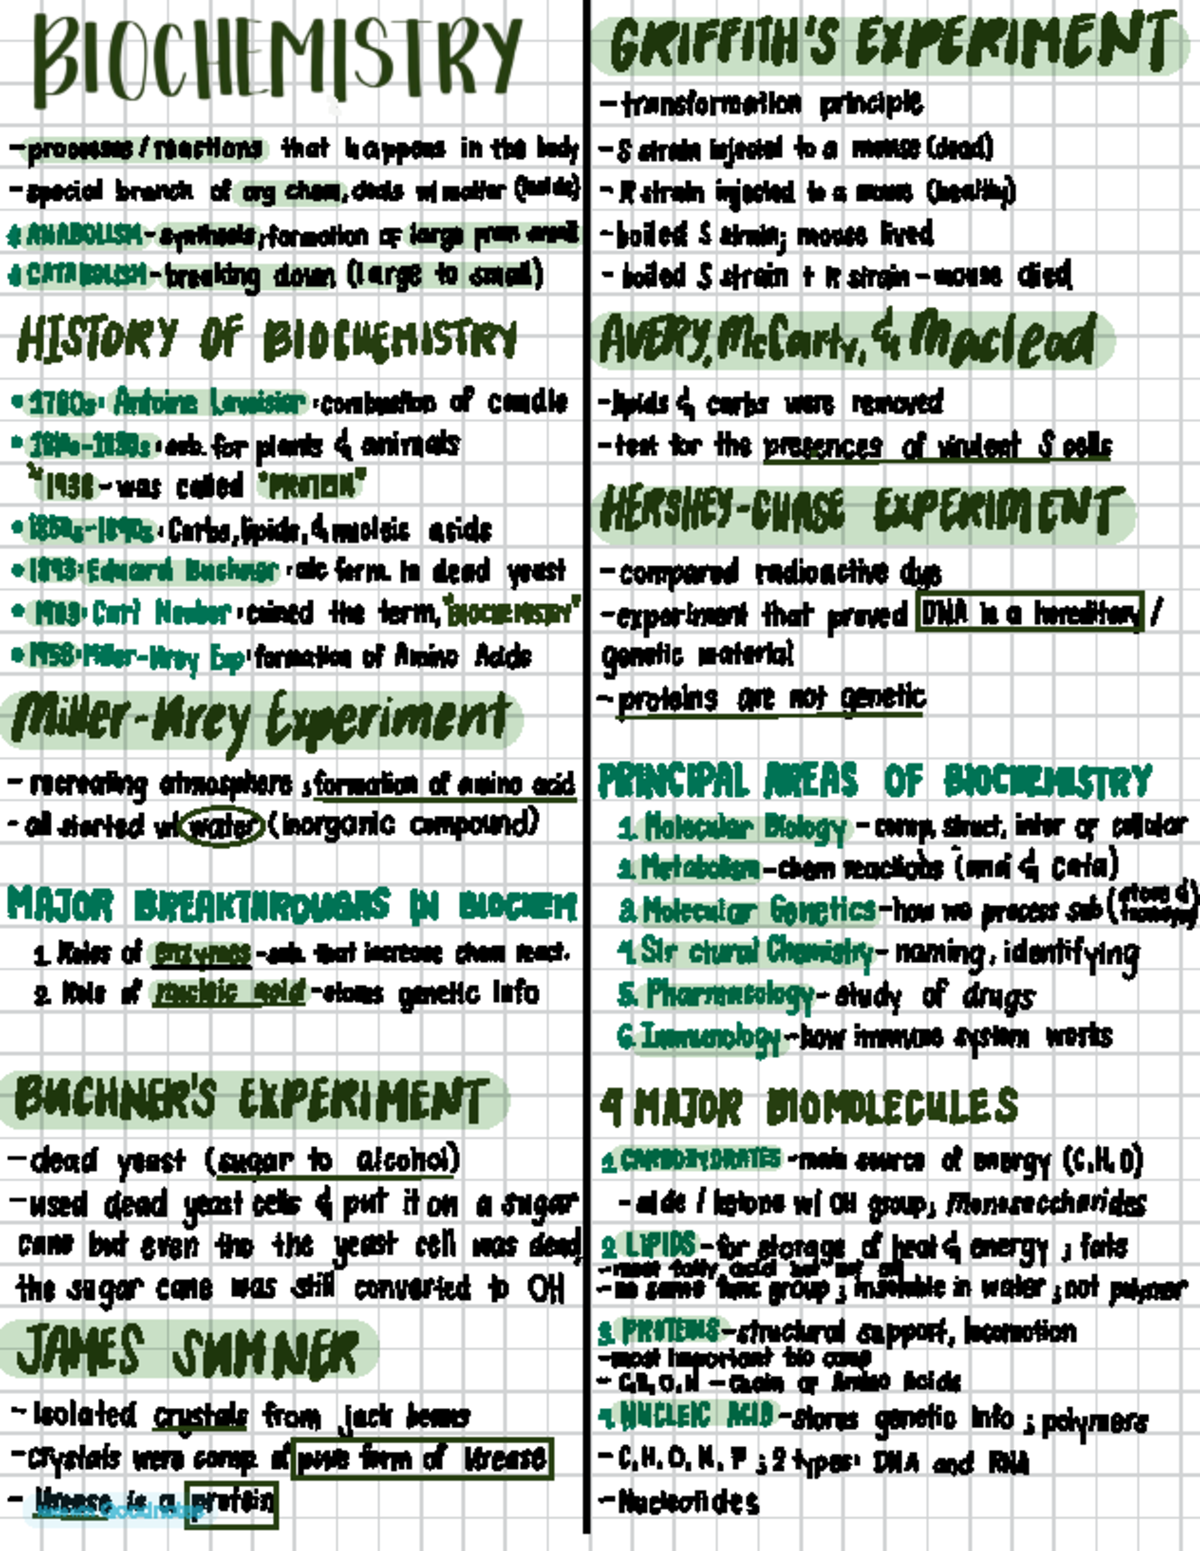 BIOCHEMISTRY
-processes/reactions that happens in the body
-special branch of org chem, deals w/ matter (inside)
ANABOLISM-synthesis, formation of large from small
CATABOLISM-breaking down (large to small)
HISTORY OF BIOCHEMISTRY
1780s: Antoine Lavoisier: combustion of candle
sub. for plants & animals
-was called "PROTEIN"
Carbs, lipids, & nucleic acids
Eduard Buchner: alc ferm. in dead yeast
Carl Neuber: coined the term, "BIOCHEMISTRY"
Miller-Urey Exp: formation of Amino Acids
Miller-Urey Experiment
- recreating atmosphere ; formation of amino acid
- all started w/ water (inorganic compound)
MAJOR BREAKTHROUGHS IN BIOCHEM
1. Roles of enzymes -sub. that increase chem react.
2. Role of nucleic acid -stores genetic info
BUCHNER'S EXPERIMENT
-dead yeast (sugar to alcohol)
-used dead yeast cells & put it on a sugar
cane but even tho the yeast cell was dead,
the sugar cane was still converted to OH
JAMES SUMNER
-Isolated crystals from jack beans
-crystals were comp. of pure form of Urease
- Urease is a protein
Goodnotes
GRIFFITH'S EXPERIMENT
-transformation principle
-S strain injected to a mouse (dead)
-R strain injected to a mouse (healthy)
-boiled S strain; mouse lived
- boiled S strain + R strain-mouse died
AVERY, McCarty, & Macleod
-lipids & carbs were removed
-test for the presences of virulent S cells
HERSHEY-CHASE EXPERIMENT
-compared radioactive dye
-experiment that proved DNA is a hereditary /
genetic material
-proteins are not genetic
PRINCIPAL AREAS OF BIOCHEMISTRY
1. Molecular Biology - comp, struct, inter of cellular
2. Metabolism-chem reactions (ana & cata)
3. Molecular Genetics-how we process sub (store &
4. Structural Chemistry- naming, identifying
5. Pharmacology- study of drugs
6. Immunology-how immune system works
4 MAJOR BIOMOLECULES
1 CARBOHYDRATES -main source of energy (C,H,O)
-alde / ketone w/ OH group; Monosaccharides
2 LIPIDS -for storage of heat & energy ; fats
-most fatty acid but not all
-no same func group ; insoluble in water ; not polymer
3. PROTEINS-structural support, locomotion
-most important bio comp
- C,H,O,N -Chain of Amino Acids
4 NUCLEIC ACID -stores genetic info ; polymers
-C,H,O,N,P ; 2 types: DNA and RNA
-Nucleotides